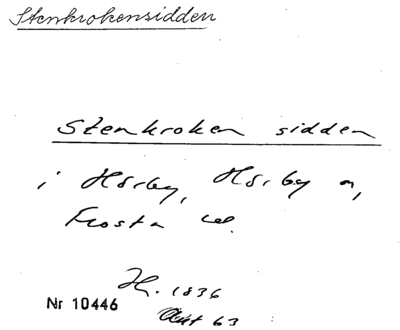 Stenkrokensidden
Stenkroken sidden
i Hörby, Hörby n,
Frosta
H. 1836
Nr 10446
63